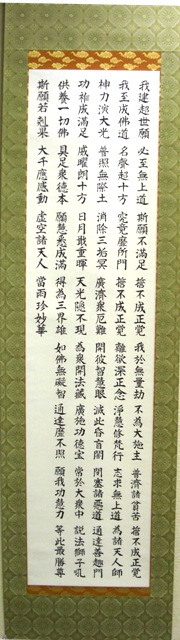 我建超世願 必至無上道 斯願不満足 誓不成正覚 我於無量劫 不為大施主 普濟諸貧苦 誓不成正覚
我至成佛道 名聲超十方 究竟靡所聞 誓不成正覚 離欲深正念 淨慧修梵行 志求無上道 為諸天人師
神力演大光 普照無際土 消除三垢冥 廣濟衆厄難 開彼智慧眼 滅此昏盲闇 閉塞諸惡道 通達善趣門
功祚成満足 威曜朗十方 日月戢重暉 天光隠不現 為衆開法蔵 廣施功徳宝 常於大衆中 説法師子吼
供養一切佛 具足衆徳本 願慧悉成満 得為三界雄 如佛無礙智 通達靡不照 願我功慧力 等此最勝尊
斯願若剋果 大千應感動 虚空諸天人 當雨珍妙華